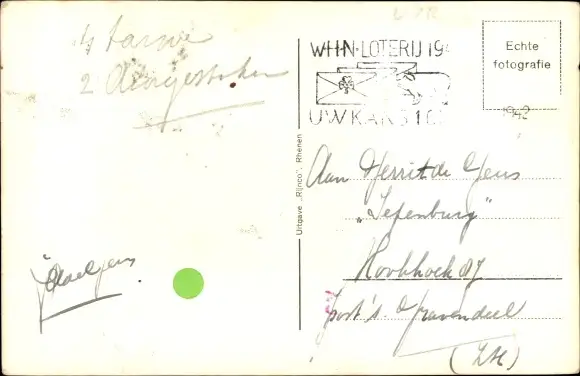 4 tarwe
2 Aangestoken
WHN-LOTERIJ 194
UW KANS IS
Echte
fotografie
1942
Uitgave „Rijnco", Rhenen
Aan Gerrit de Geus
„Zefenburg"
87
post 's Gravendeel
(ZH)